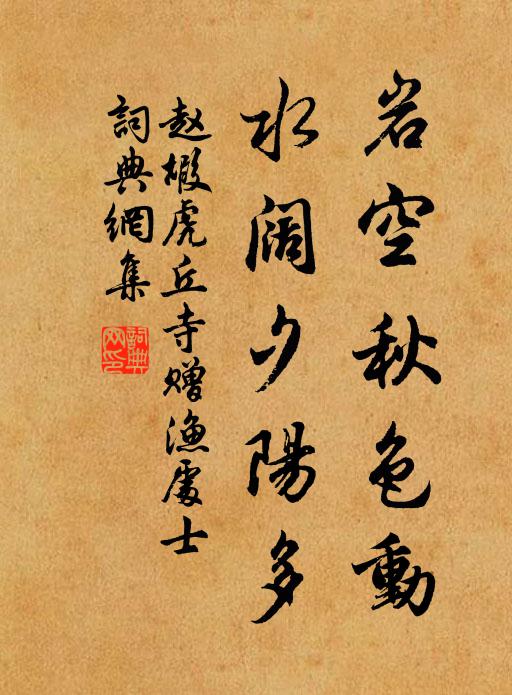 岩空秋色動
水阔夕陽多
赵嘏虎丘寺赠渔處士
詞典網集
詞典网印